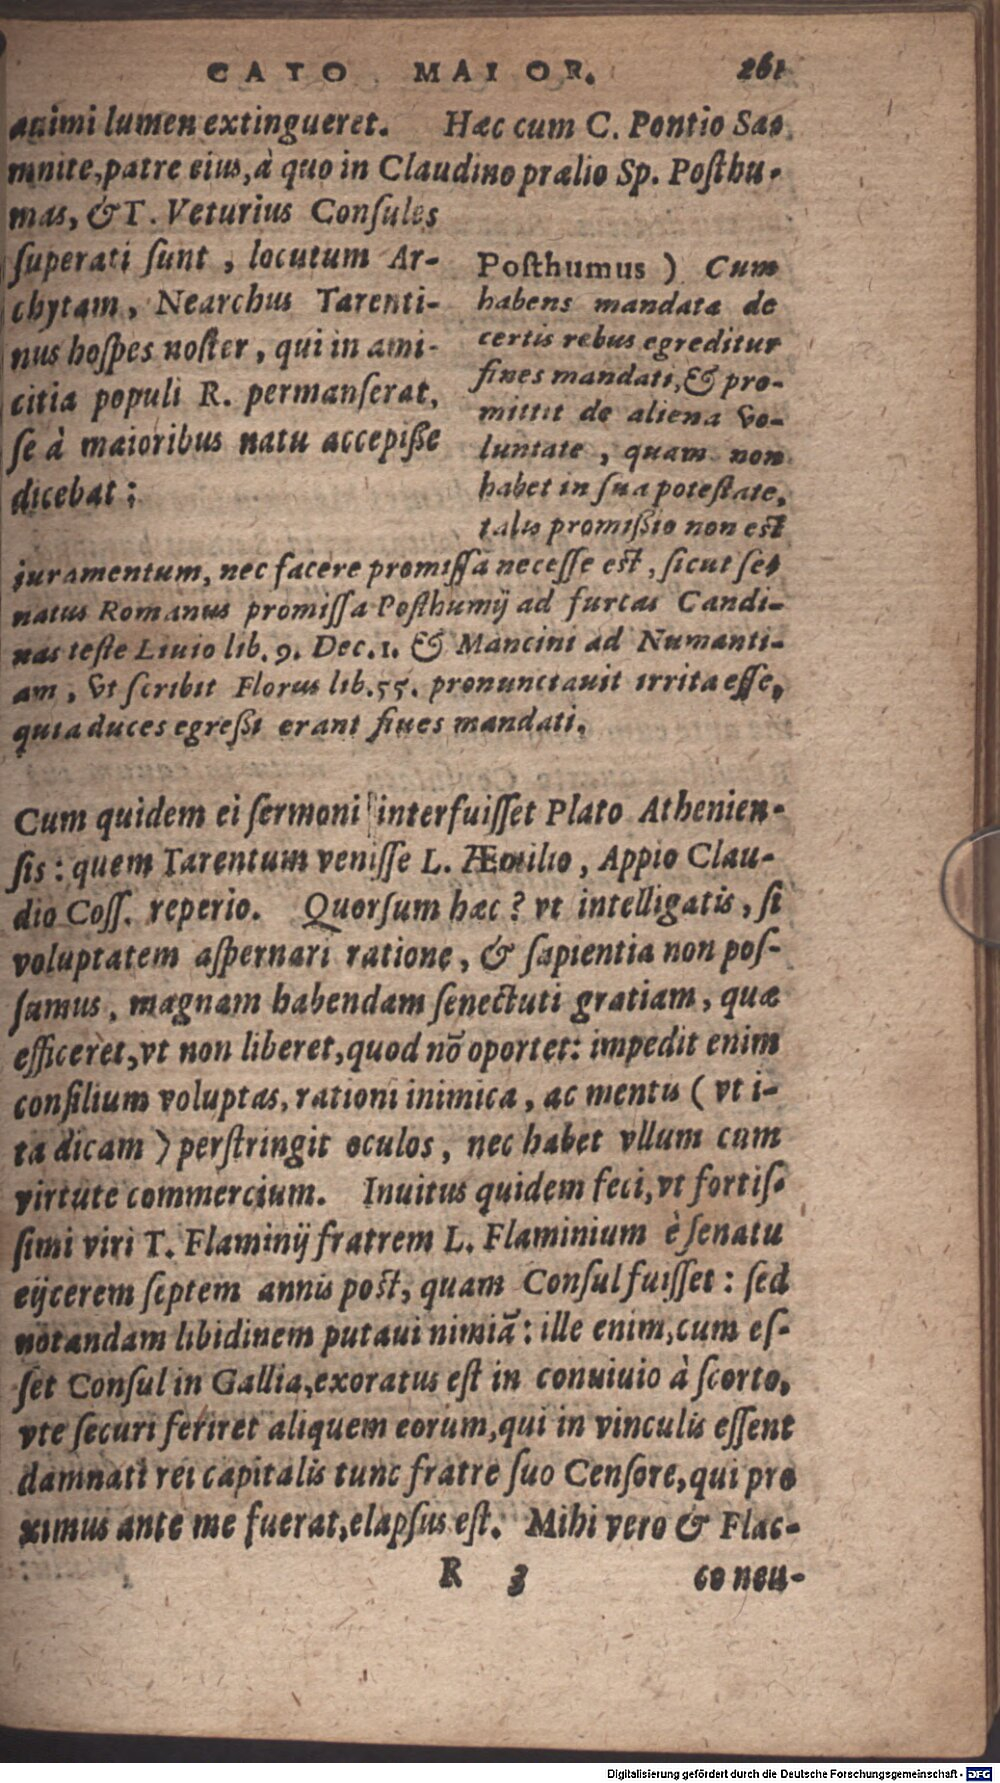 CATO MAIOR. 261
animi lumen extingueret. Hæc cum C. Pontio Sa-
mnite, patre eius, à quo in Claudino prælio Sp. Posthu-
mas, & T. Veturius Consules
superati sunt, locutum Ar-
chytam, Nearchus Tarenti-
nus hospes noster, qui in ami-
citia populi R. permanserat,
se à maioribus natu accepiße
dicebat:
Posthumus) Cum
habens mandata de
certis rebus egreditur
fines mandati, & pro-
mittit de aliena vo-
luntate, quam non
habet in sua potestate,
talis promißio non est
iuramentum, nec facere promissa necesse est, sicut se-
natus Romanus promissa Posthumij ad furcas Candi-
nas teste Liuio lib. 9. Dec. 1. & Mancini ad Numanti-
am, vt scribit Florus lib. 55. pronunctauit irrita esse,
quia duces egreßi erant fines mandati.
Cum quidem ei sermoni interfuisset Plato Athenien-
sis: quem Tarentum venisse L. Æmilio, Appio Clau-
dio Coss. reperio. Quorsum hæc? vt intelligatis, si
voluptatem aspernari ratione, & sapientia non pos-
samus, magnam habendam senectuti gratiam, quæ
efficeret, vt non liberet, quod nõ oportet: impedit enim
consilium voluptas, rationi inimica, ac mentis (vt i-
ta dicam) perstringit oculos, nec habet vllum cum
virtute commercium. Inuitus quidem feci, vt fortis-
simi viri T. Flaminij fratrem L. Flaminium è senatu
eijcerem septem annis post, quam Consul fuisset: sed
notandam libidinem putaui nimiã: ille enim, cum es-
set Consul in Gallia, exoratus est in conuiuio à scorto,
vte securi feriret aliquem eorum, qui in vinculis essent
damnati rei capitalis tunc fratre suo Censore, qui pro
ximus ante me fuerat, elapsus est. Mihi vero & Flac-
R 3 co neu-
Digitalisierung gefördert durch die Deutsche Forschungsgemeinschaft - DFG